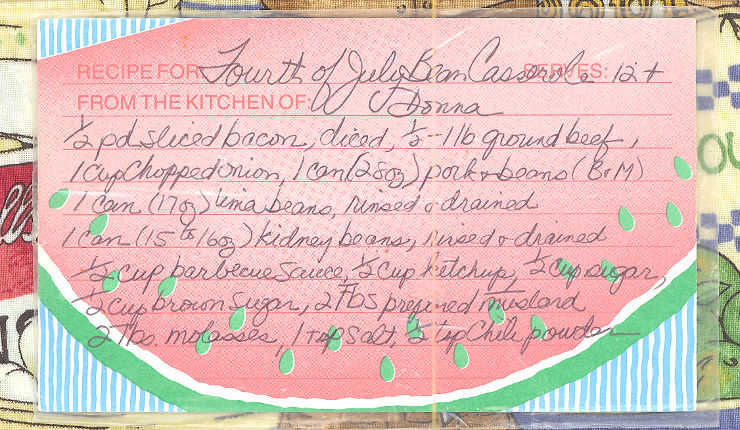 RECIPE FOR Fourth of July Bean Casserole SERVES: 12+
FROM THE KITCHEN OF: Donna
½ pd sliced bacon, diced, ½--1 lb ground beef,
1 cup Chopped onion, 1 can (28oz) pork & beans (B&M)
1 Can (17oz) lima beans, rinsed & drained
1 Can (15 to 16oz) kidney beans, rinsed & drained
½ cup barbecue sauce, ½ cup ketchup, ½ cup sugar,
½ cup brown sugar, 2 Tbs prepared mustard
2 Tbs. molasses, 1 tsp salt, ½ tsp Chili powder